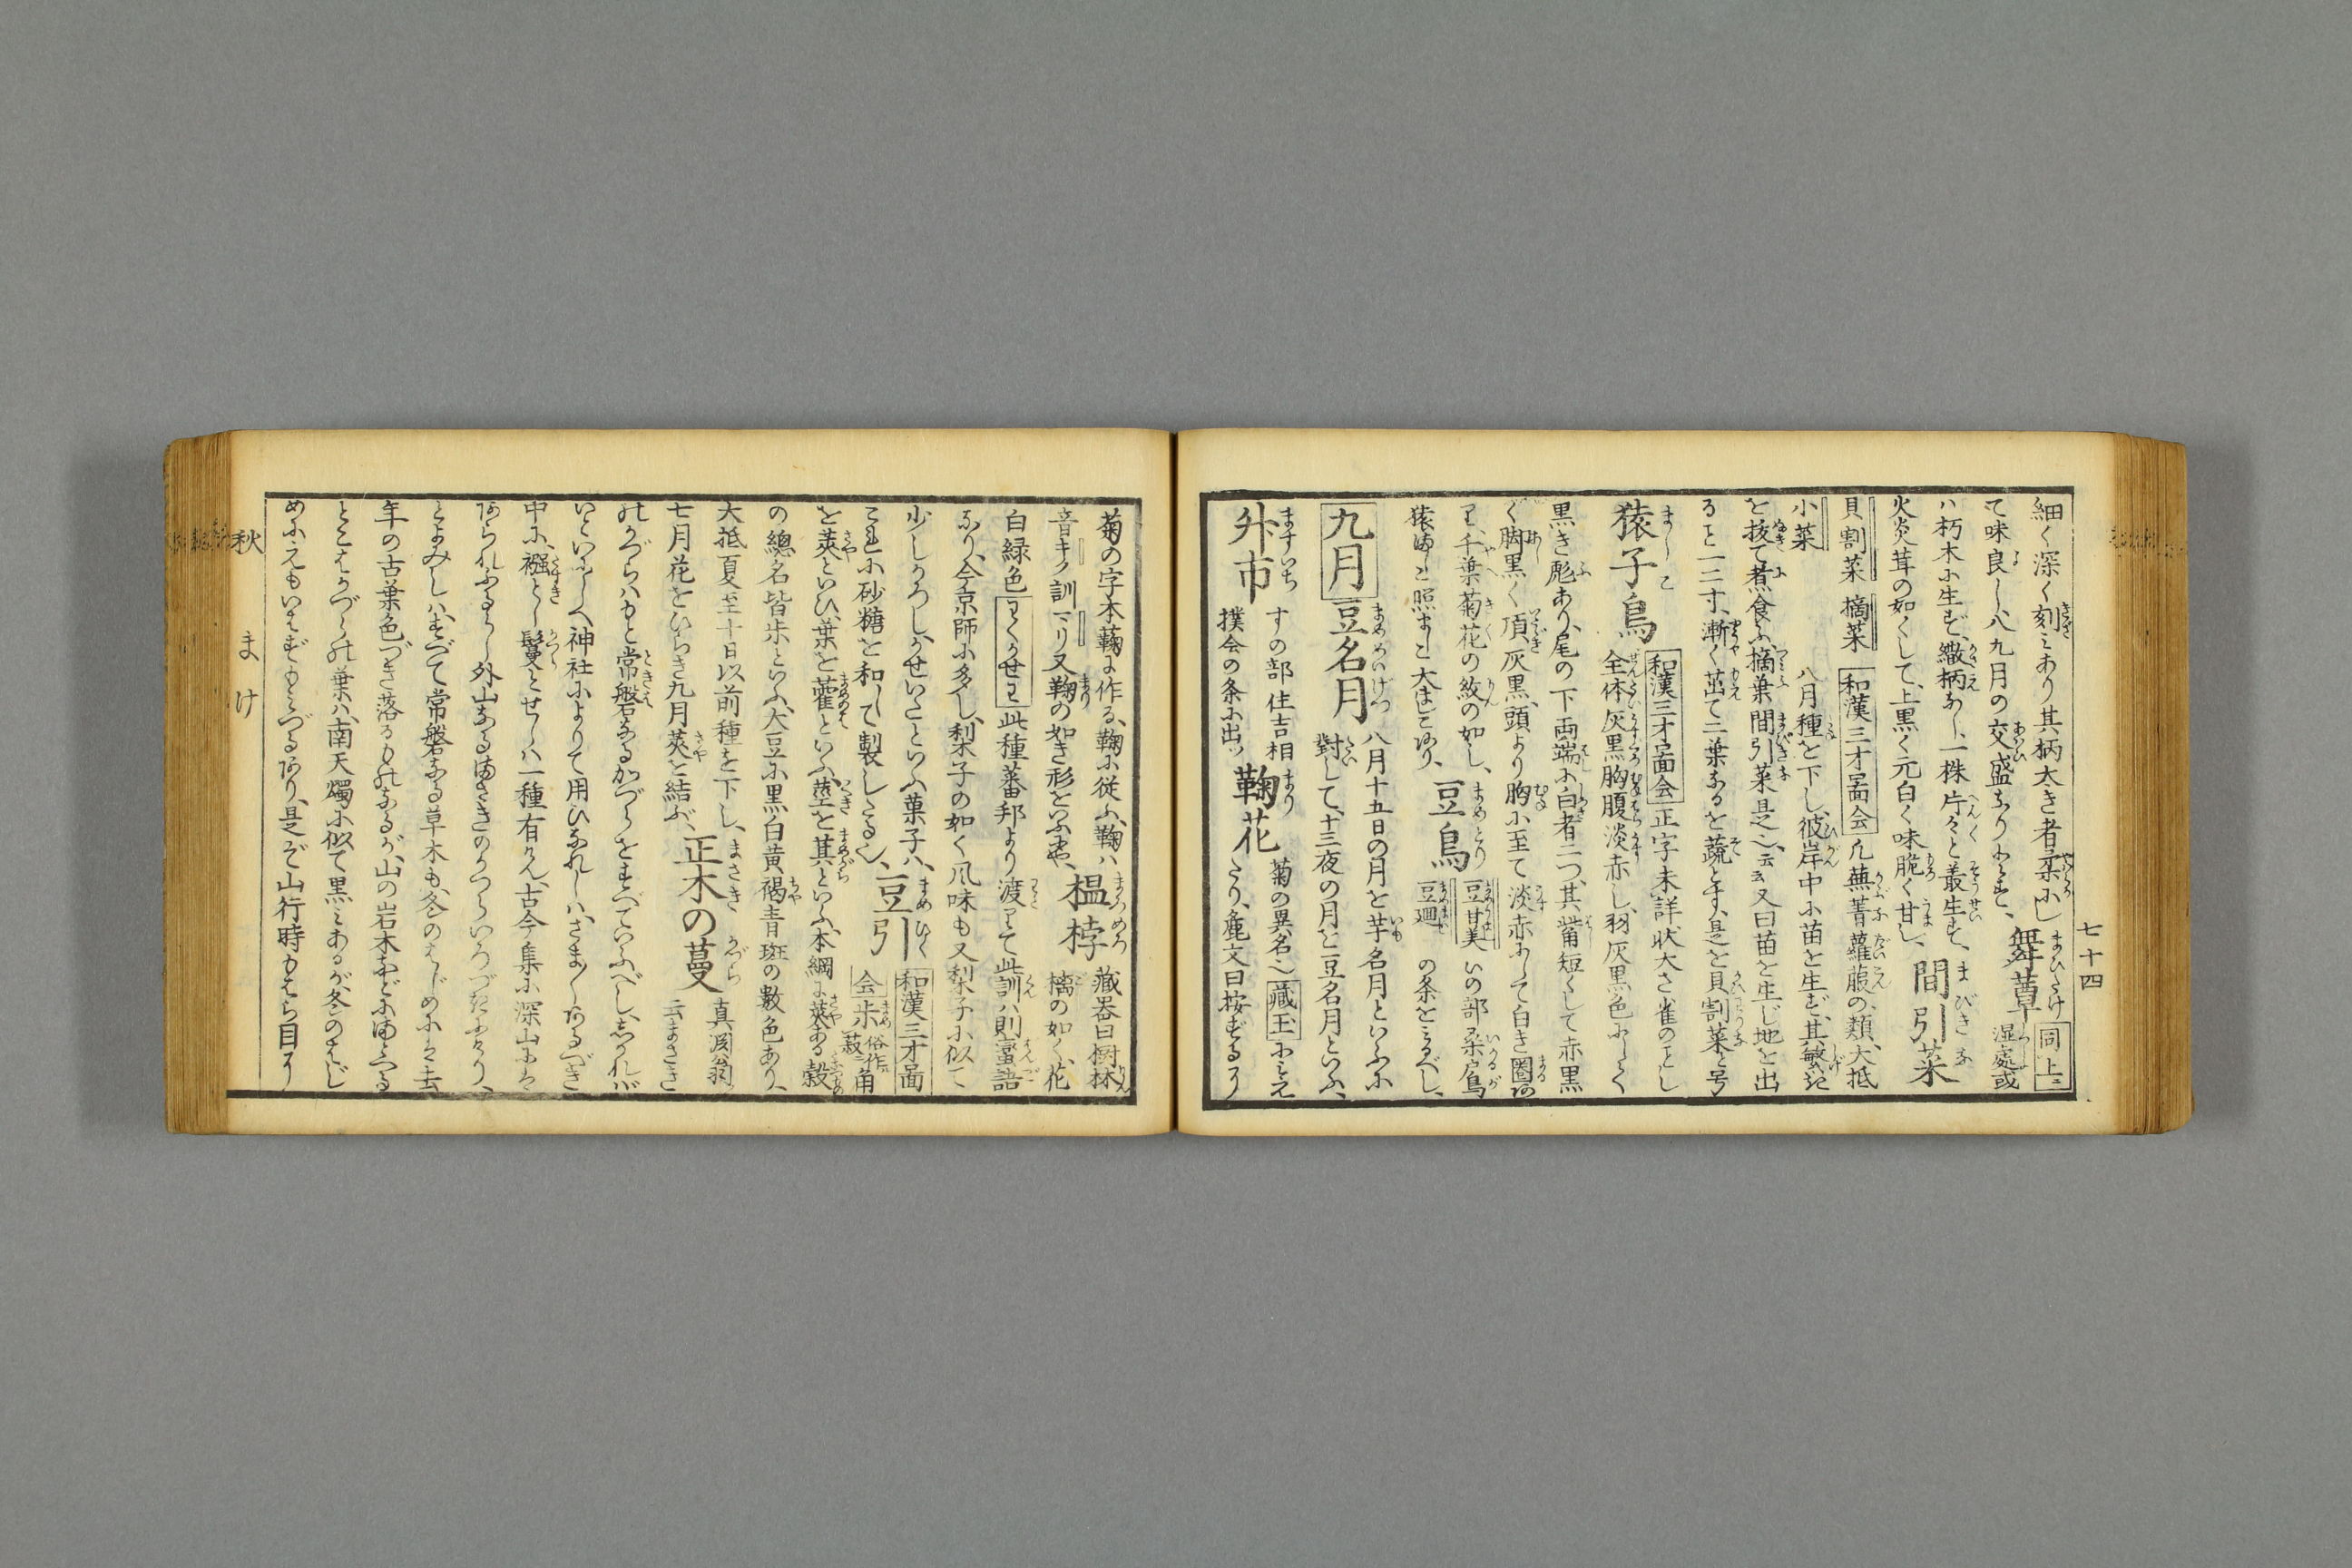 七十四
細く深く刻ミあり其柄大き者柔にし
て味良し八九月の交盛なりとす、舞蕈 同上 湿處或
ハ朽木に生ず、繖柄なし一株片々と叢生す、間引菜
火炎茸の如くして、上黒く元白く味脆く甘し、
貝割菜 摘菜 和漢三才圖会 凡蕪菁蘿蔔の類、大抵
小菜 八月種を下し、彼岸中に苗を生ず、其
を抜て煮食ふ、摘菜間引菜是也、云云又曰苗を生じ地を出
ること一二寸、漸く茁て二葉なるを蔬とす、是を貝割菜と号
猿子鳥 和漢三才圖会 正字未詳状大さ雀のごとし
全体灰黒胸腹淡赤し、羽灰黒色にして
黒き彪あり、尾の下両端に白者二つ、其觜短くして赤黒
く脚黒く、頂灰黒、頭より胸に至て淡赤にして白き圏あ
り千葉菊花の紋の如し、豆鳥 豆甘美 いの部桑鳲
猿ましこ照ましこ大ましこあり、豆廻 の条をミるべし、
九月 豆名月 八月十五日の月を芋名月といふに
對して、十三夜の月を豆名月といふ、
升市 すの部住吉相
撲会の条に出ッ 鞠花 菊の異名也 藏玉 にミえ
たり、麁文曰按ずるに
菊の字本蘜に作る、鞠に従ふ、鞠ハ
音キク訓マリ又鞠の如き形をいふ也、榅桲 藏器曰樹林
檎の如く、花
白緑色 此種蕃邦より渡りて此訓ハ則蠻語
なり、今京師に多し、梨子の如く風味も又梨子に似て
少しかろし、かせいたといふ菓子ハ、豆引 和漢三才圖
会 尗 俗作
これに砂糖を和して製したる也、
を莢といひ、葉を藿といふ、莖を萁といふ、本綱に莢ある穀
の總名皆尗といふ、大豆に黒白黄褐青斑の數色あり、
大抵夏至十日以前種を下し、
七月花をひらき九月莢を結ぶ、正木の蔓 真淵翁
云まさき
のかづらハもと常磐なるかづらをすべていふべし、しかれば
いといにしへ神社によりて用ひなれしハ、さま〴〵あるべき
中に、襁とし鬘とせしハ一種有けん、古今集に深山にハ
あられふるらし外山なるまさきのかつらいろづきにけり、
とよみしハ、すべて常磐なる草木も、冬のはじめにハ去
年の古葉色づき落るものなるが、山の岩木などにまとへる
とこはかづらの葉ハ、南天燭に似て黒ミあるが、冬のはじ
めにえもいはずもミづるあり、是ぞ山行時もはら目に
秋 まけ